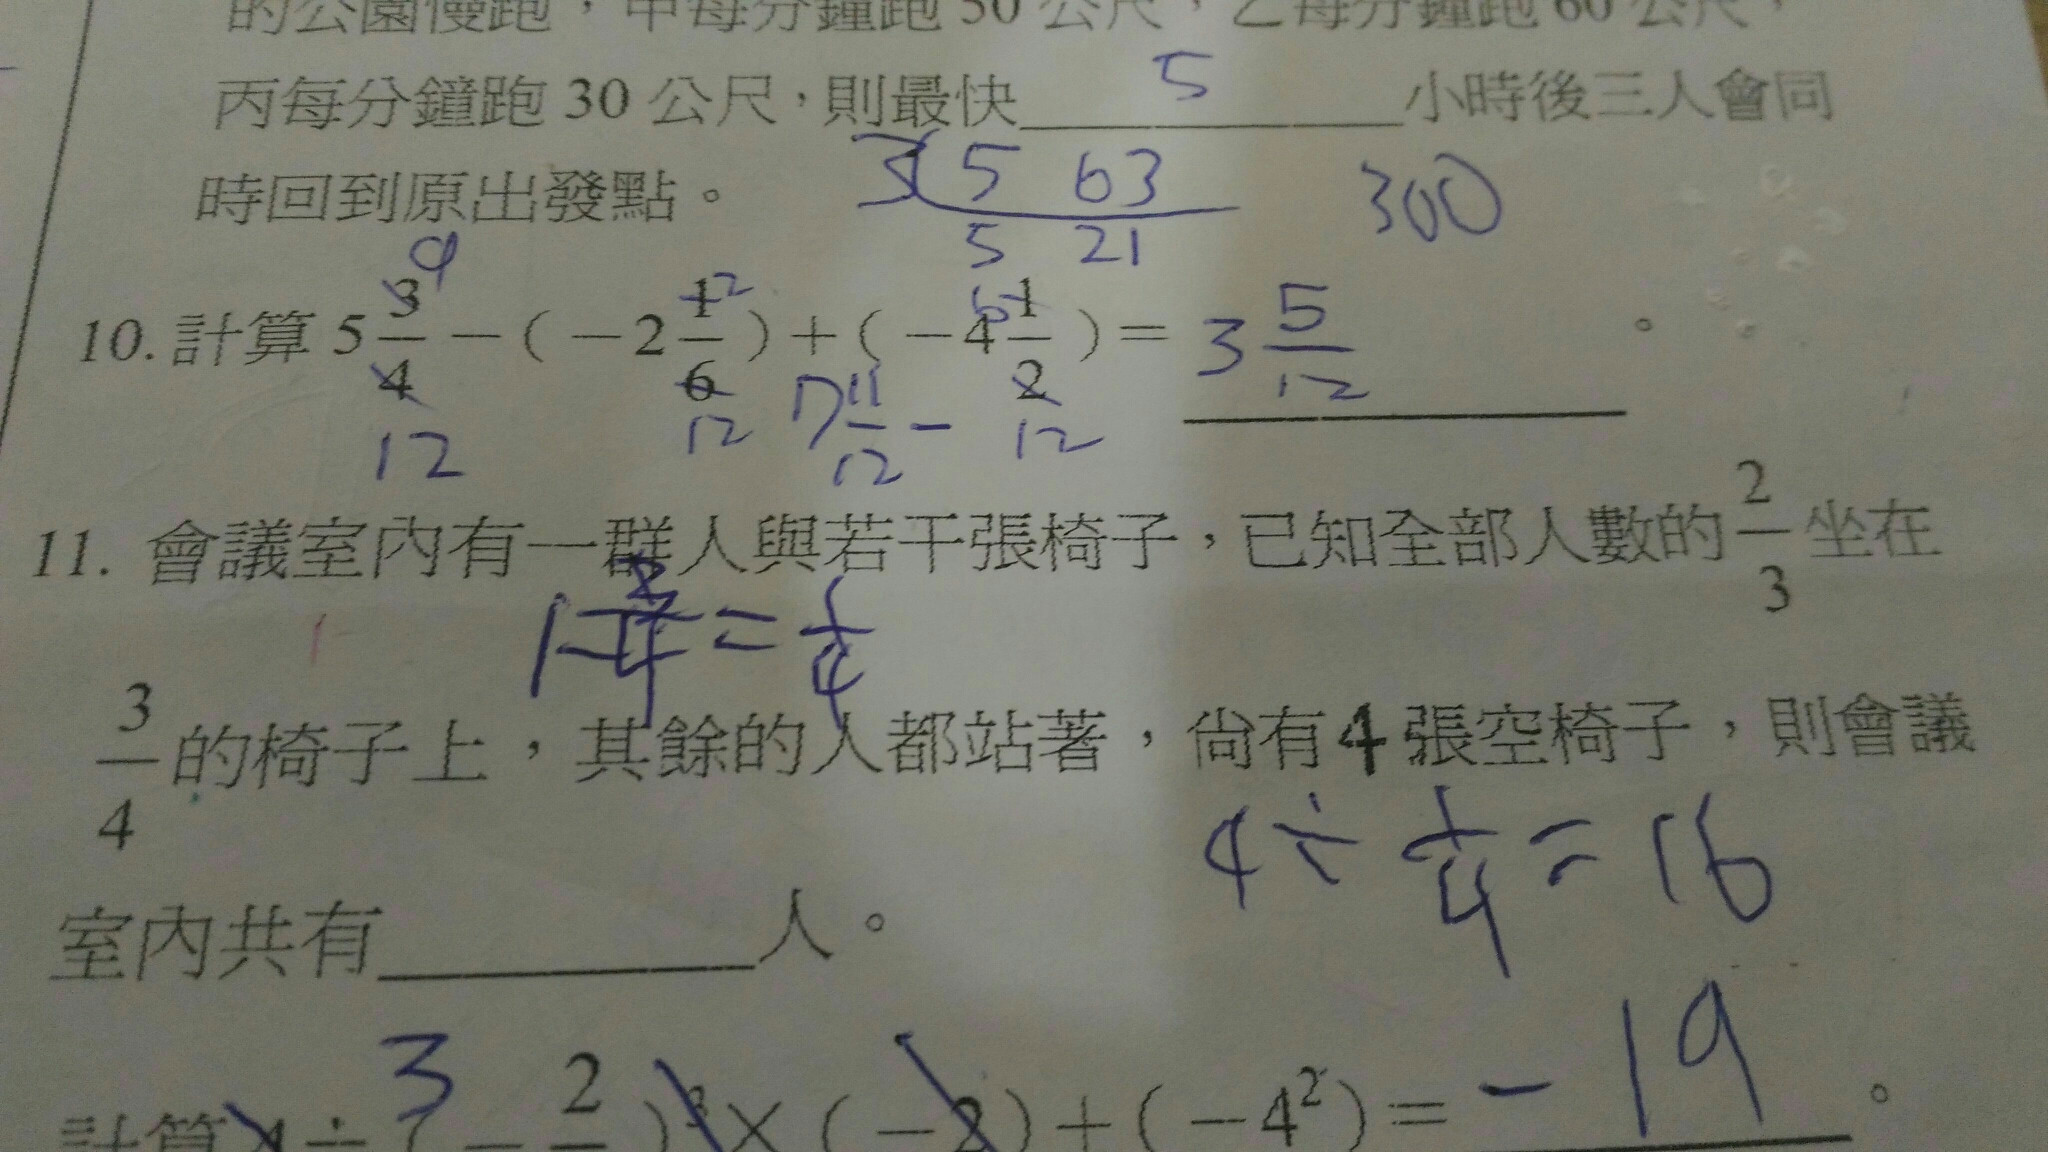 的公園慢跑，甲每分鐘跑 50 公尺，乙每分鐘跑 60 公尺，
丙每分鐘跑 30 公尺，則最快 5 小時後三人會同
時回到原出發點。
3 5 63 300
5 21
9 2 6
10. 計算 5 3/4 －（－2 1/6）＋（－4 1/2）＝ 3 5/12 。
12 12 7 11/12 - 12
11. 會議室內有一群人與若干張椅子，已知全部人數的 2/3 坐在
1 - 3/4 = 1/4
3/4 的椅子上，其餘的人都站著，尚有 4 張空椅子，則會議
4 ÷ 1/4 = 16
室內共有 人。
3
計算 ÷（－2 )³×（－2）＋（－4²）＝ -19 。